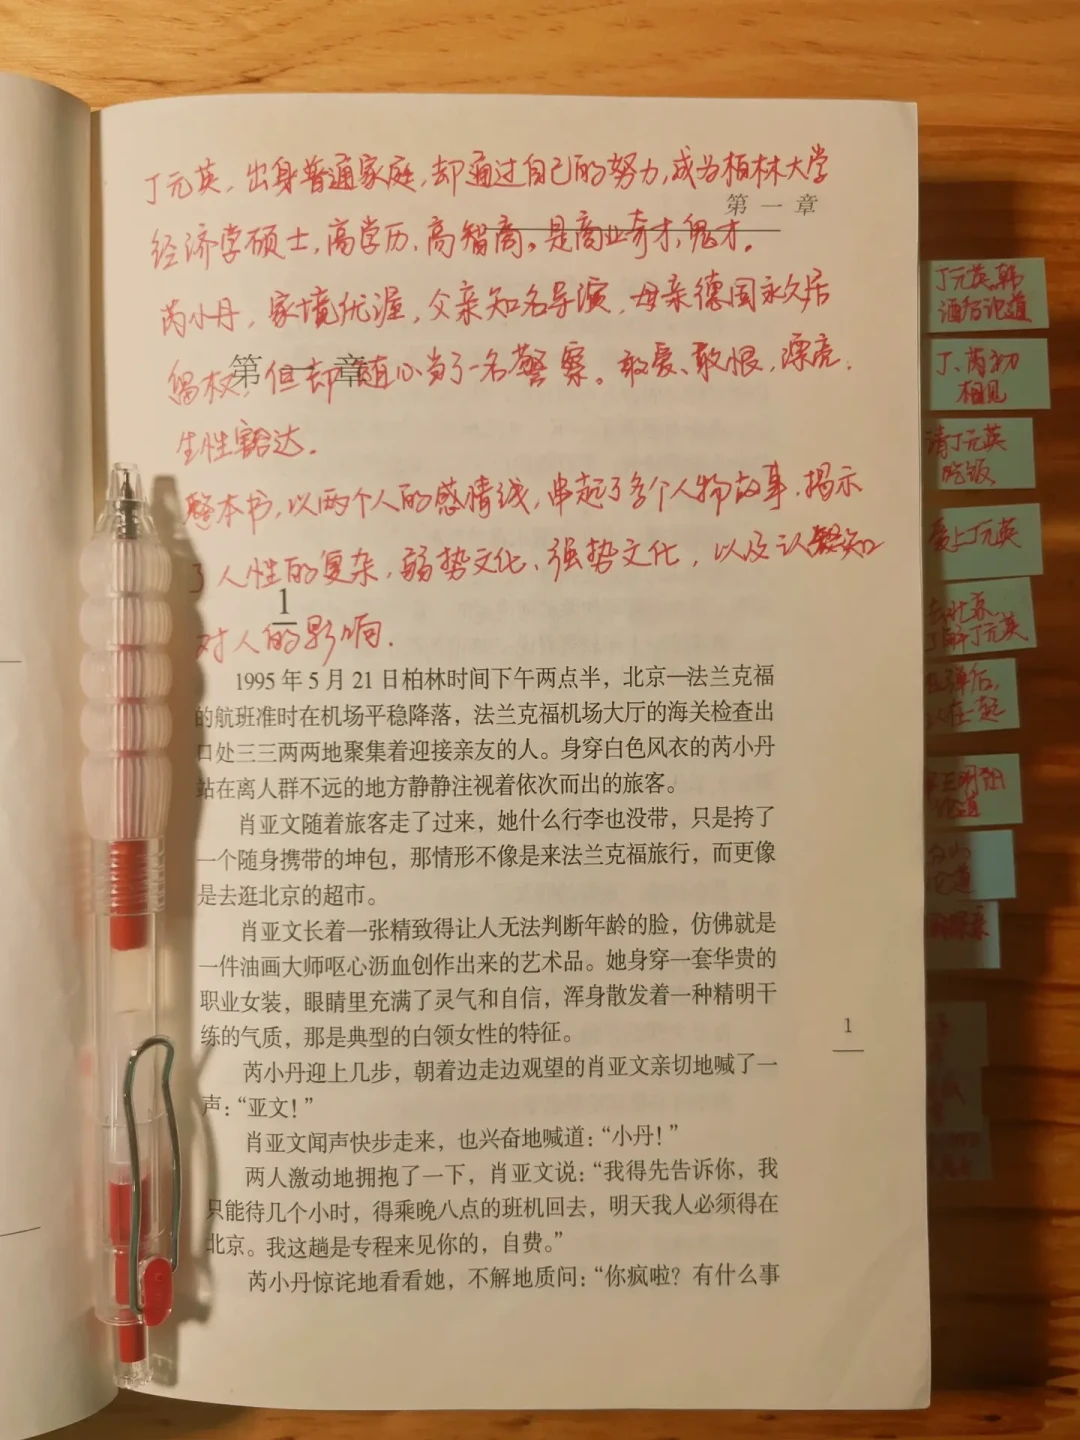 丁元英，出身普通家庭，却通过自己的努力，成为柏林大学
第一章
经济学硕士，高学历，高智商。是商业奇才，鬼才。
芮小丹，家境优渥，父亲知名导演，母亲德国永久居
第一章
留权，但却随心当了一名警察。敢爱、敢恨，漂亮，
生性豁达。
整本书，以两个人的感情线，串起了多个人物故事，揭示
了人性的复杂，弱势文化、强势文化，以及认知
1
对人的影响。
1995年5月21日柏林时间下午两点半，北京—法兰克福
的航班准时在机场平稳降落，法兰克福机场大厅的海关检查出
口处三三两两地聚集着迎接亲友的人。身穿白色风衣的芮小丹
站在离人群不远的地方静静注视着依次而出的旅客。
肖亚文随着旅客走了过来，她什么行李也没带，只是挎了
一个随身携带的坤包，那情形不像是来法兰克福旅行，而更像
是去逛北京的超市。
肖亚文长着一张精致得让人无法判断年龄的脸，仿佛就是
一件油画大师呕心沥血创作出来的艺术品。她身穿一套华贵的
职业女装，眼睛里充满了灵气和自信，浑身散发着一种精明干
练的气质，那是典型的白领女性的特征。
芮小丹迎上几步，朝着边走边观望的肖亚文亲切地喊了一
声：“亚文！”
肖亚文闻声快步走来，也兴奋地喊道：“小丹！”
两人激动地拥抱了一下，肖亚文说：“我得先告诉你，我
只能待几个小时，得乘晚八点的班机回去，明天我人必须得在
北京。我这趟是专程来见你的，自费。”
芮小丹惊诧地看看她，不解地质问：“你疯啦？有什么事
1
丁元英、韩
酒后论道
丁、芮初
相见
请丁元英
吃饭
爱上丁元英
了解丁元英
论道
论道